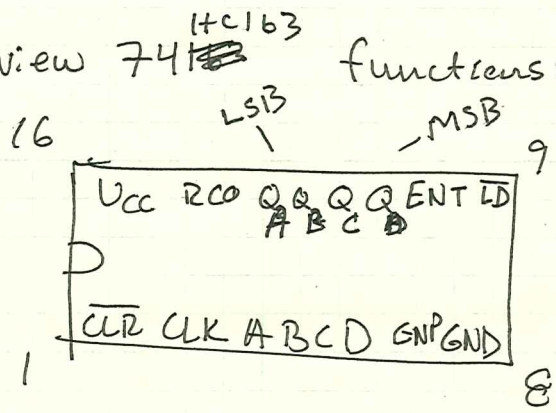 HC163
view 74 functions
LSB MSB
16 9
VCC RCO QA QB QC QD ENT L̅D̅
C̅L̅R̅ CLK A B C D ENP GND
1 8